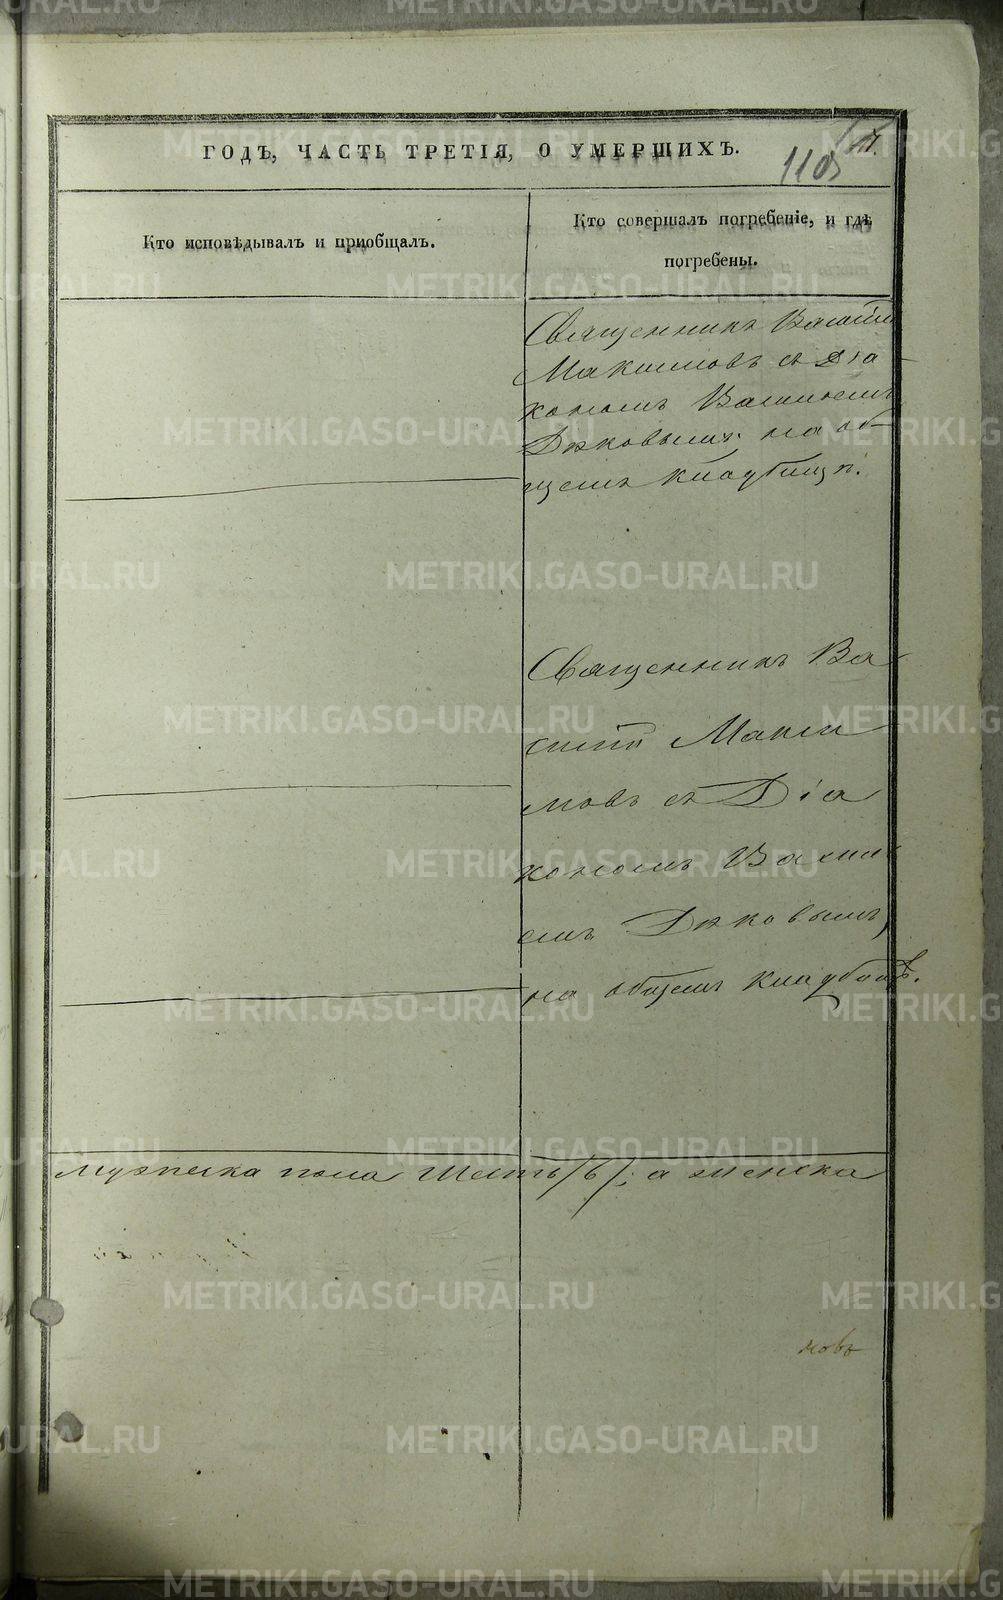 ГОДЪ, ЧАСТЬ ТРЕТІЯ, О УМЕРШИХЪ.
110
Кто исповѣдывалъ и пріобщалъ.
Кто совершалъ погребеніе, и гдѣ
погребены.
Священникъ Василій
Максимовъ съ Діа-
кономъ Василіемъ
Дьяковымъ на об-
щемъ кладбищѣ.
Священникъ Ва
силій Макси
мовъ съ Діа
кономъ Васили
емъ Дьяковымъ,
на общемъ кладбищѣ.
мужеска пола шесть /6/; а женска
новъ
METRIKI.GASO-URAL.RU